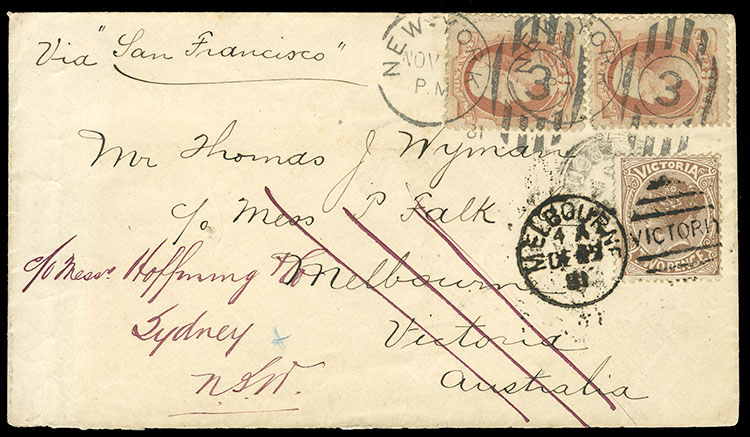 Via "San Francisco"
NEW-YORK
NOV
P.M
81
3
NEW YORK
81
3
Mr Thomas J Wyman
c/o Mess P Falk
Melbourne
Victoria
Australia
c/o Messrs Hoffnung & Co
Sydney
N.S.W.
MELBOURNE
4 A
81
VICTORIA
VICTORIA
TWOPENCE